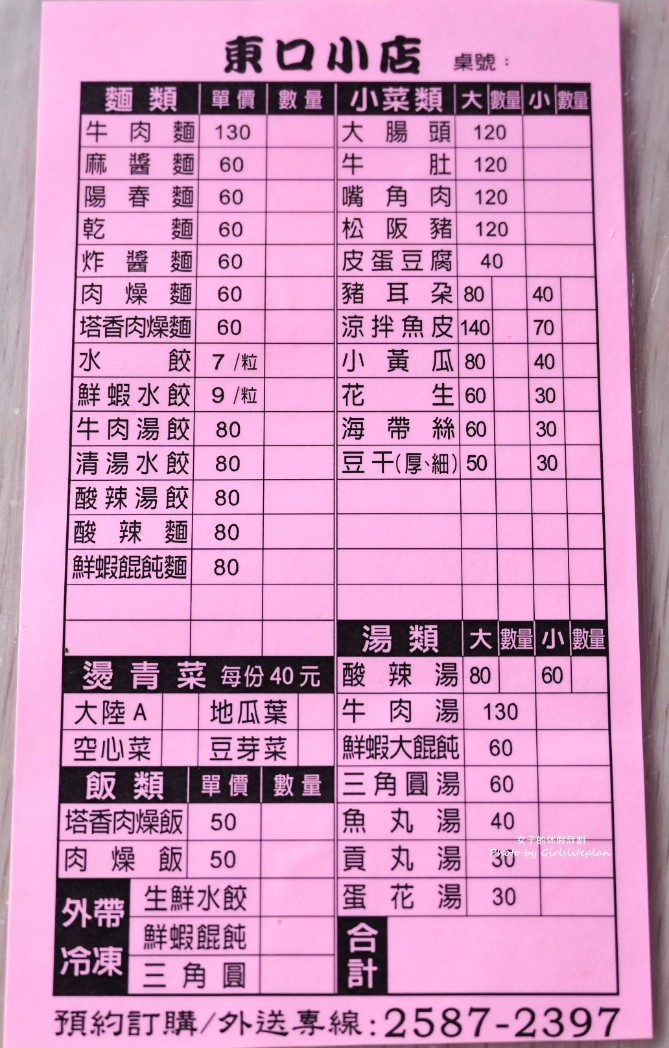 東口小店 桌號：
麵類 單價 數量
牛肉麵 130
麻醬麵 60
陽春麵 60
乾麵 60
炸醬麵 60
肉燥麵 60
塔香肉燥麵 60
水餃 7 /粒
鮮蝦水餃 9 /粒
牛肉湯餃 80
清湯水餃 80
酸辣湯餃 80
酸辣麵 80
鮮蝦餛飩麵 80
燙青菜 每份40元
大陸A 地瓜葉
空心菜 豆芽菜
飯類 單價 數量
塔香肉燥飯 50
肉燥飯 50
外帶冷凍
生鮮水餃
鮮蝦餛飩
三角圓
小菜類 大 數量 小 數量
大腸頭 120
牛肚 120
嘴角肉 120
松阪豬 120
皮蛋豆腐 40
豬耳朵 80 40
涼拌魚皮 140 70
小黃瓜 80 40
花生 60 30
海帶絲 60 30
豆干(厚、細) 50 30
湯類 大 數量 小 數量
酸辣湯 80 60
牛肉湯 130
鮮蝦大餛飩 60
三角圓湯 60
魚丸湯 40
貢丸湯 30
蛋花湯 30
合計
女子的休假計劃
Photo by Girlslifeplan
預約訂購/外送專線:2587-2397